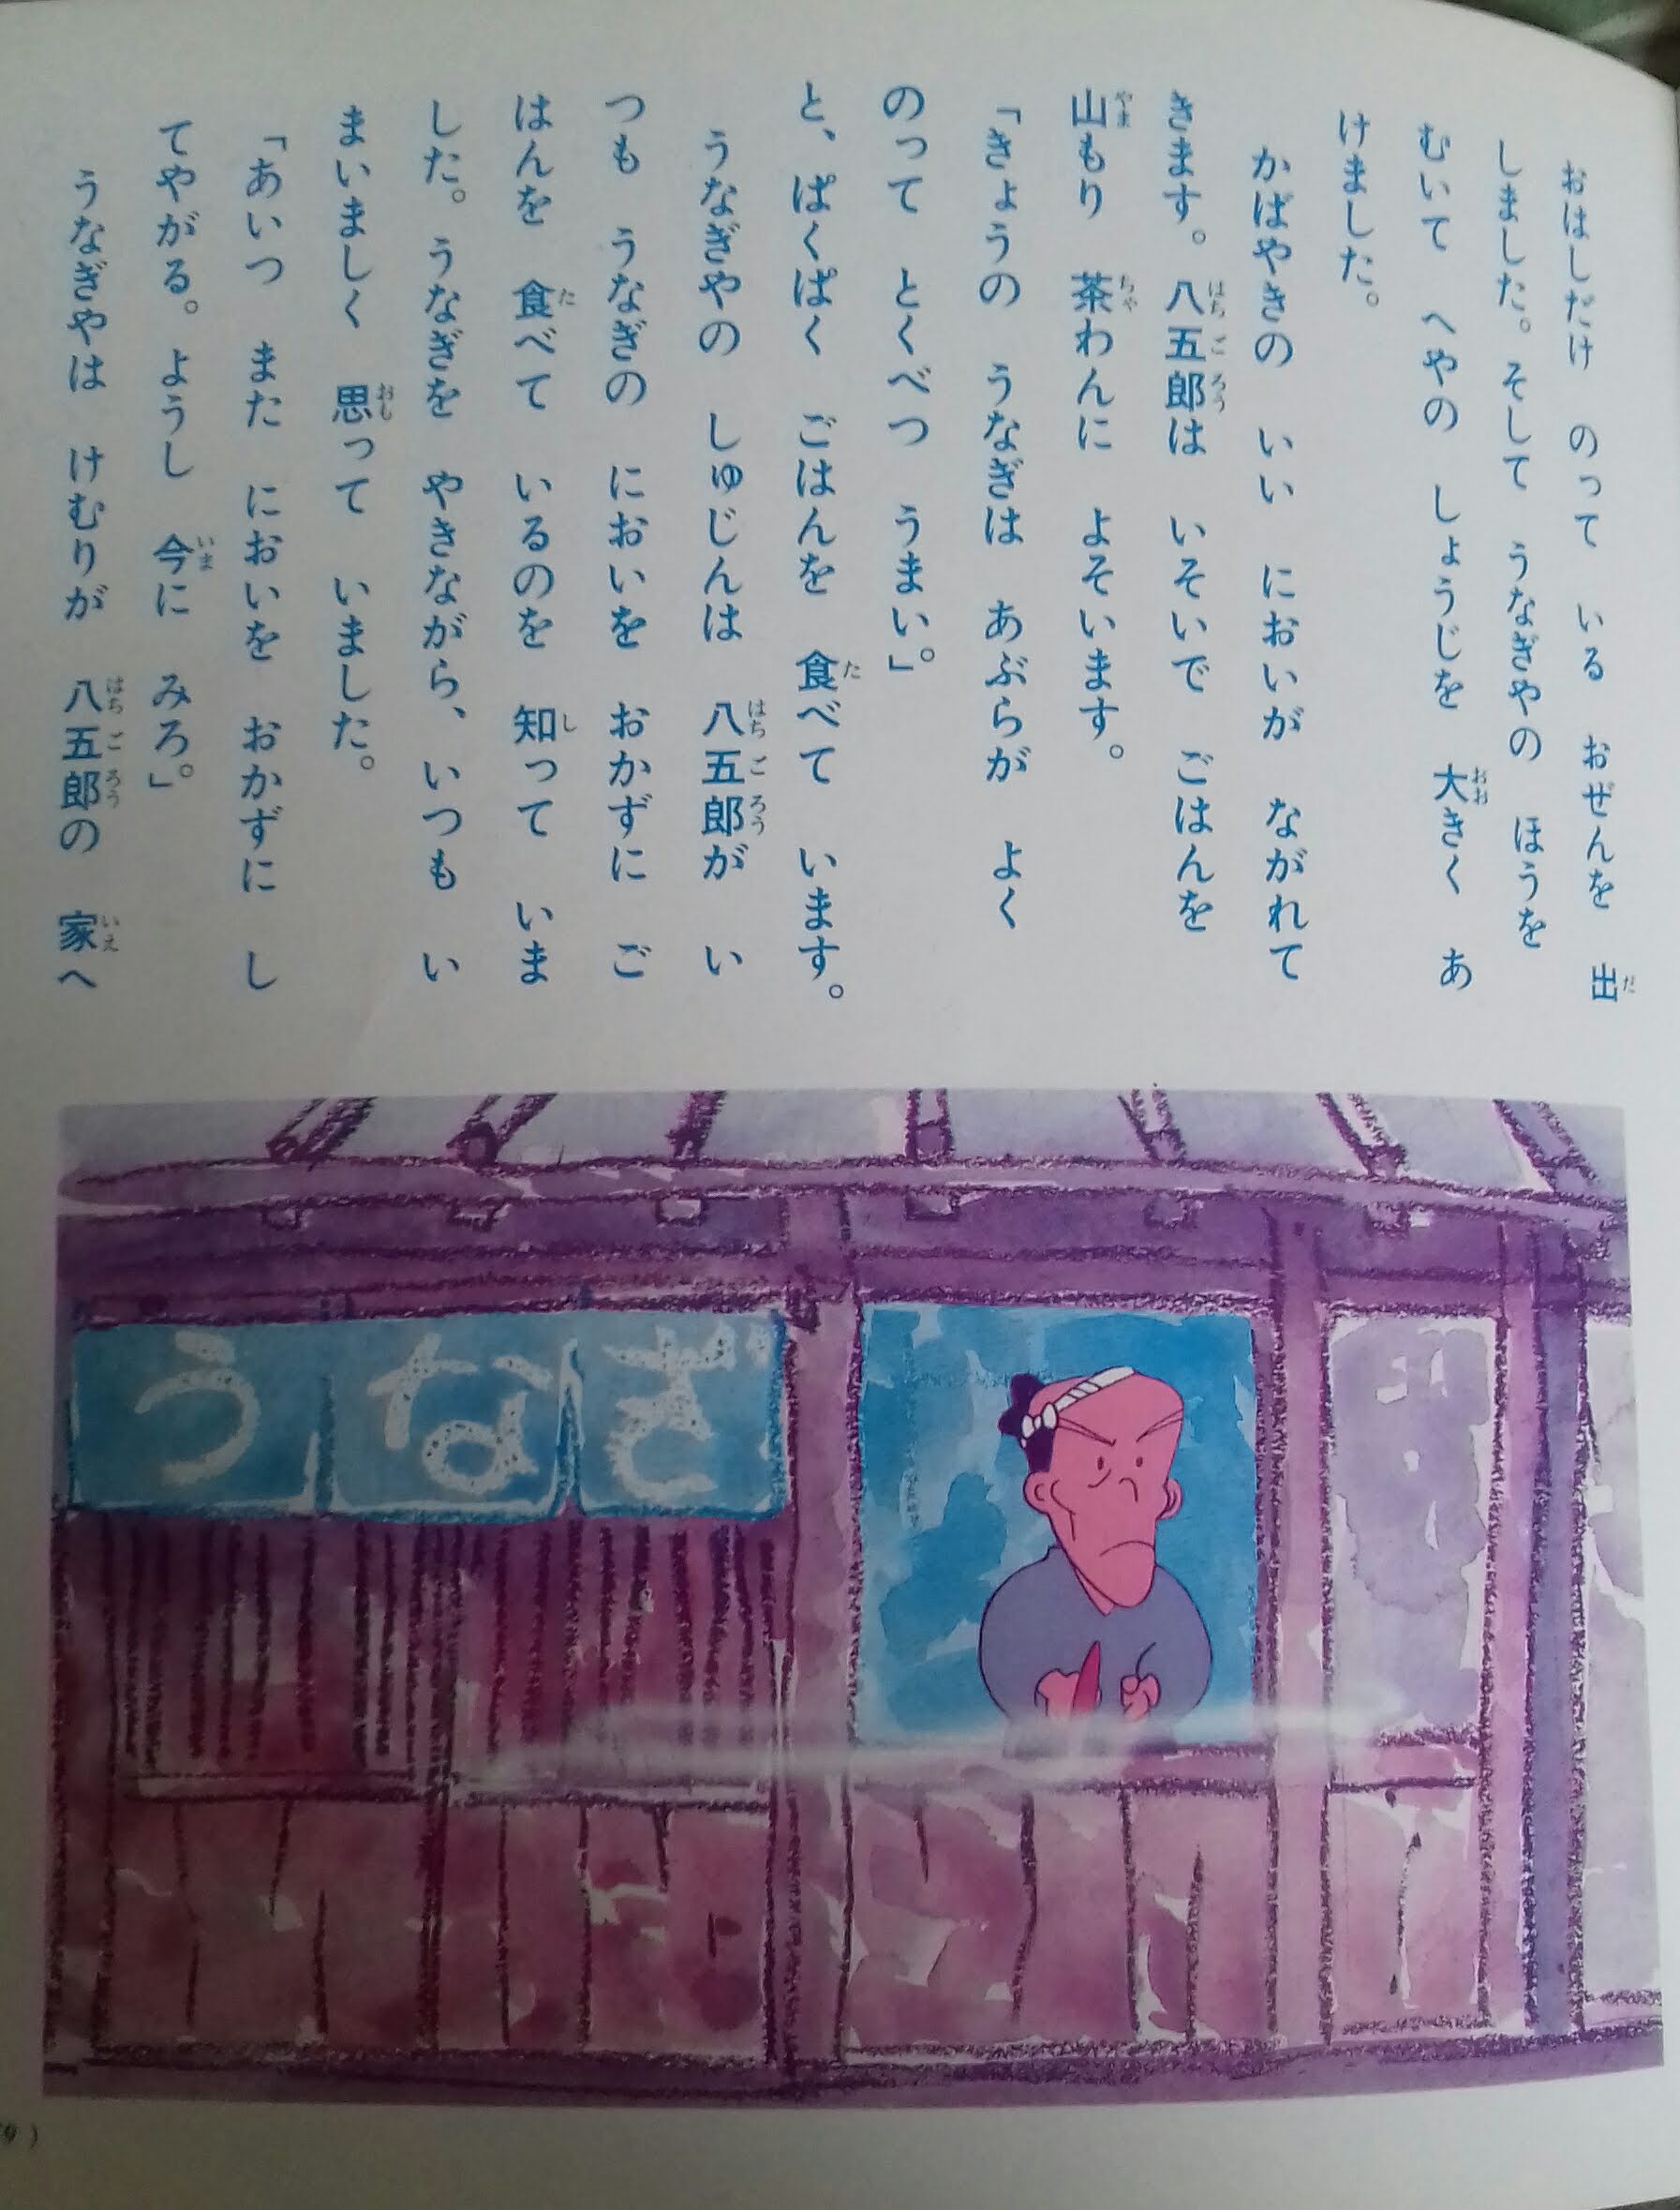 おはしだけ のって いる おぜんを 出
しました。そして うなぎやの ほうを
むいて へやの しょうじを 大きく あ
けました。
かばやきの いい においが ながれて
きます。八五郎は いそいで ごはんを
山もり 茶わんに よそいます。
「きょうの うなぎは あぶらが よく
のって とくべつ うまい。」
と、ぱくぱく ごはんを 食べて います。
うなぎやの しゅじんは 八五郎が い
つも うなぎの においを おかずに ご
はんを 食べて いるのを 知って いま
した。うなぎを やきながら、いつも い
まいましく 思って いました。
「あいつ また においを おかずに し
てやがる。ようし 今に みろ。」
うなぎやは けむりが 八五郎の 家へ
うなぎ
9)